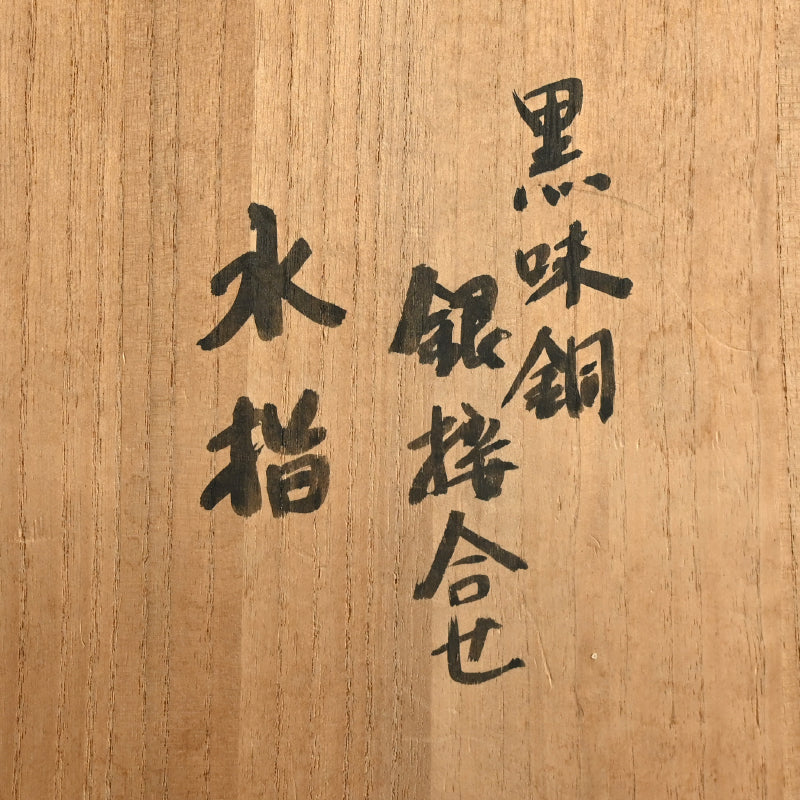 黒味銅
銀接合せ
水指